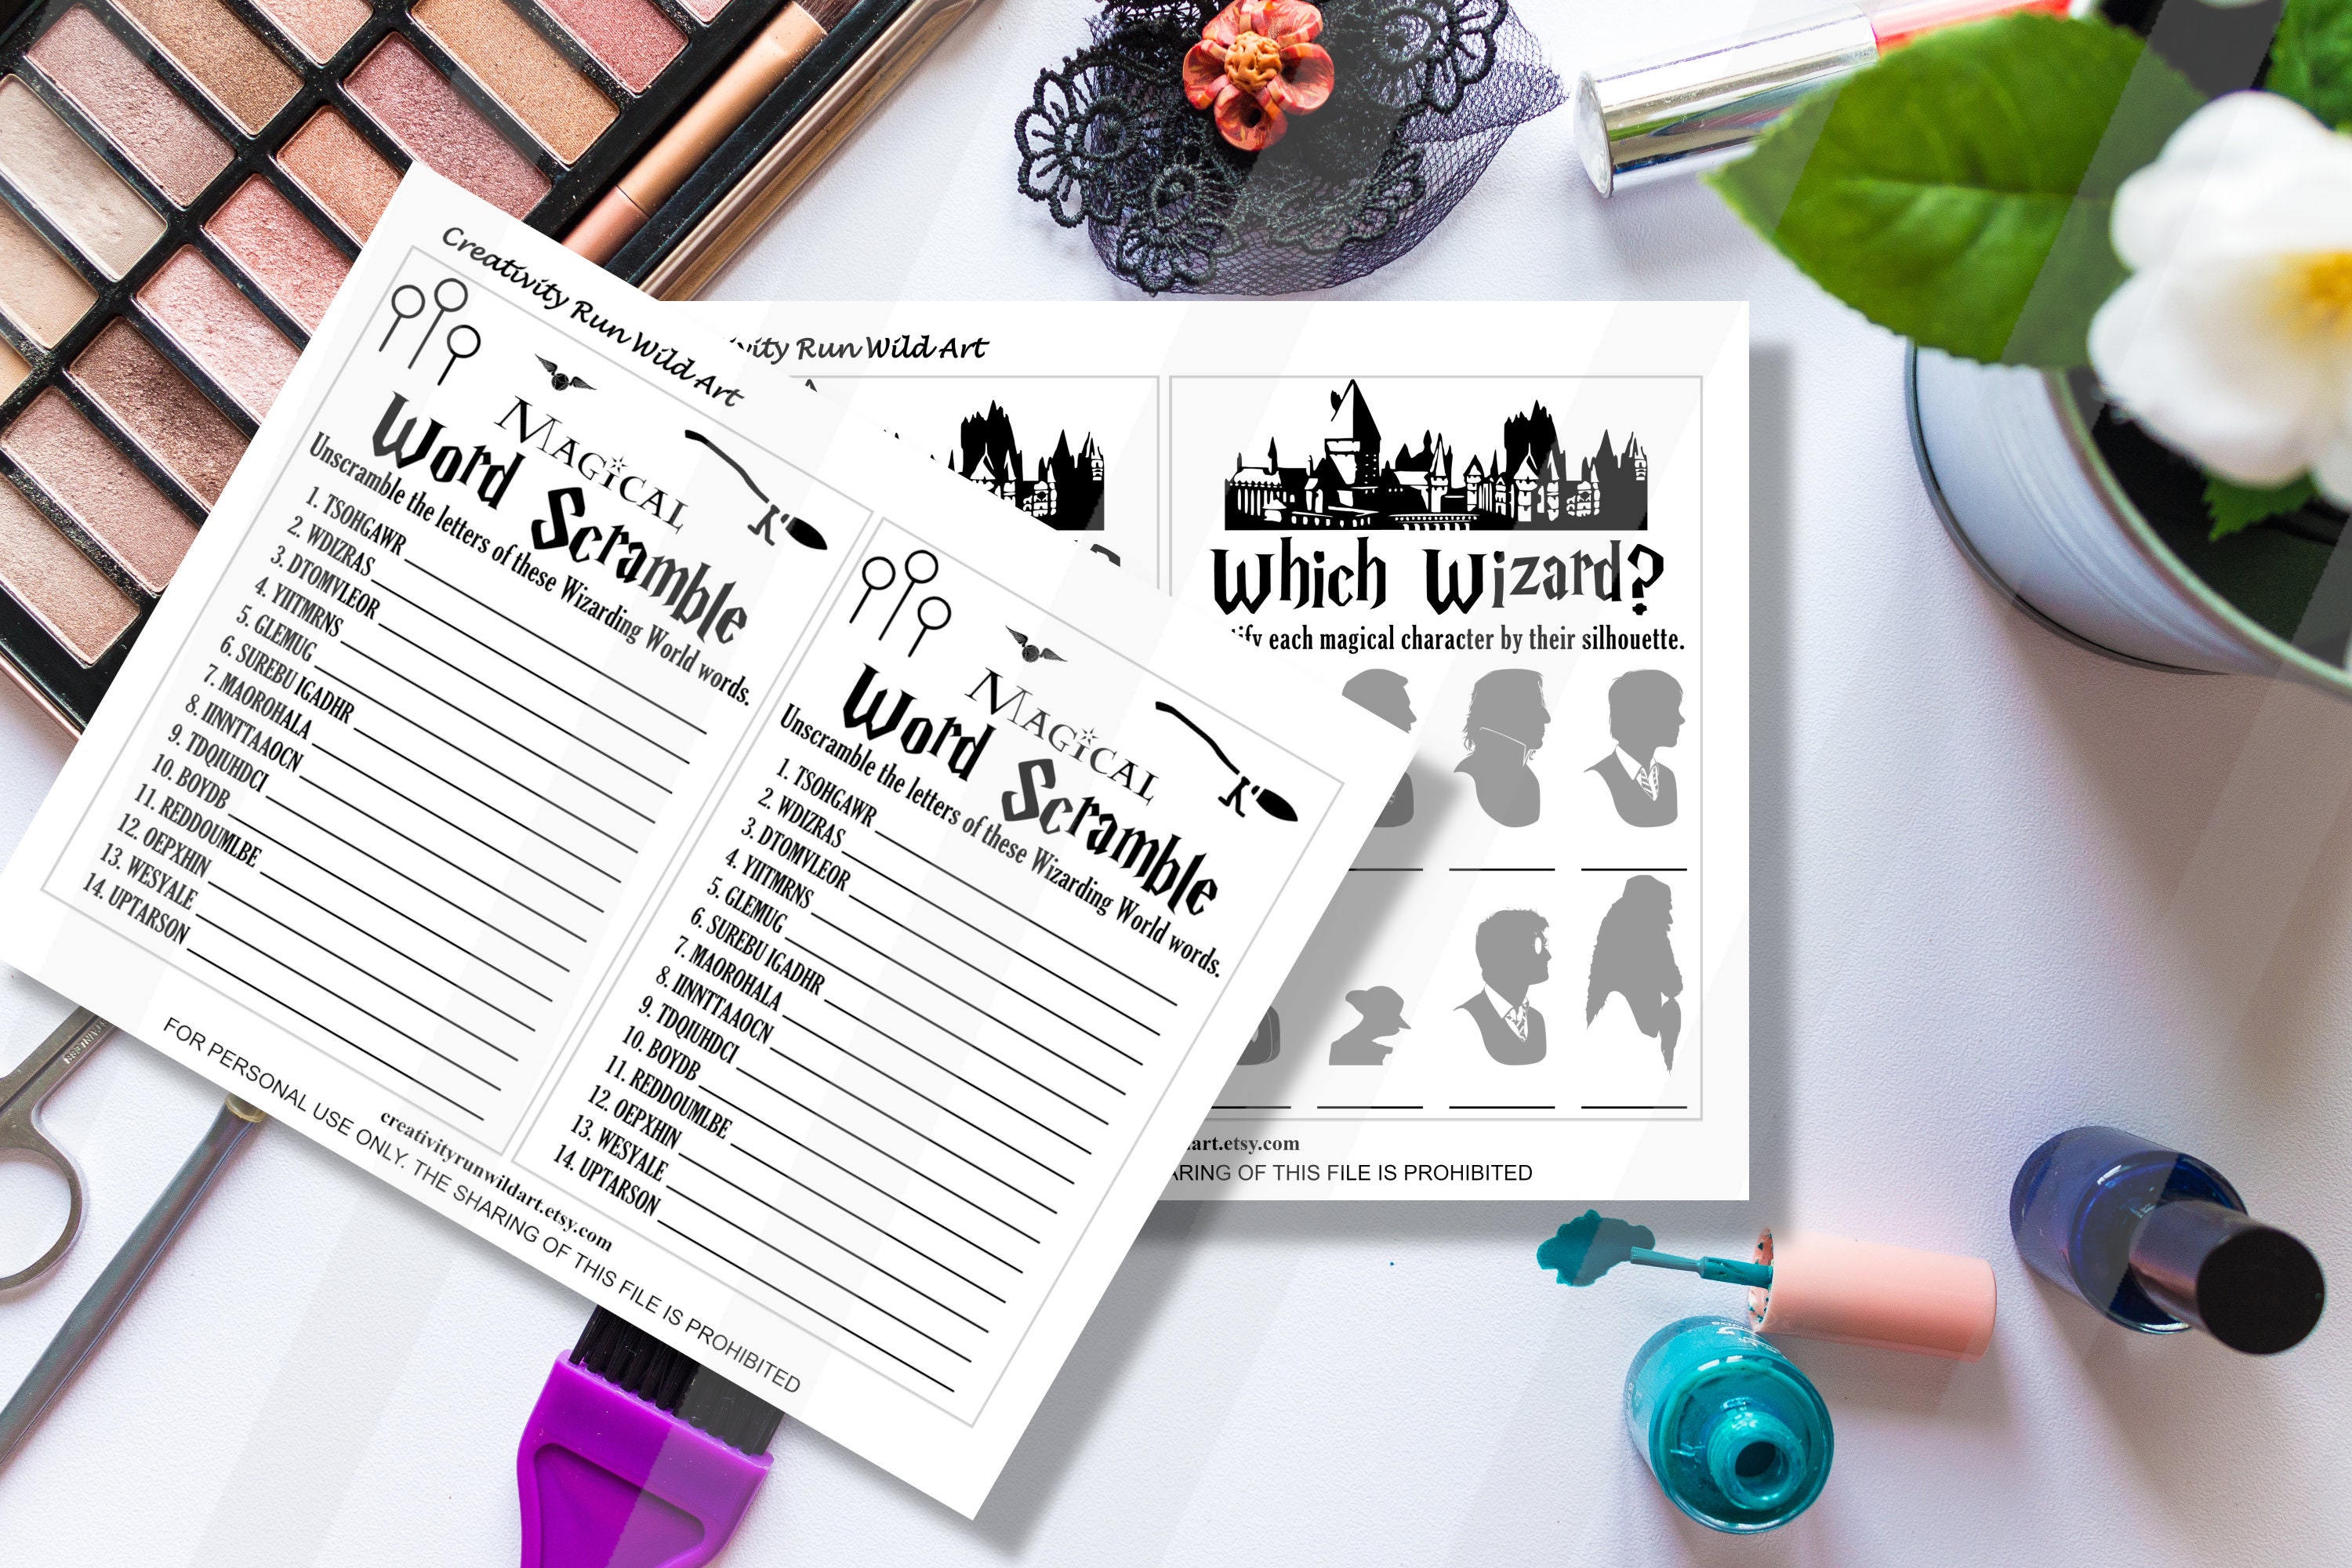 Creativity Run Wild Art
Magical
Word Scramble
Unscramble the letters of these Wizarding World words.
1. TSOHGAWR
2. WDIZRAS
3. DTOMVLEOR
4. YIITMRNS
5. GLEMUG
6. SUREBU IGADHR
7. MAOROHALA
8. IINNTTAAOCN
9. TDQIUHDCI
10. BOYDB
11. REDDOUMLBE
12. OEPXHIN
13. WESYALE
14. UPTARSON
Magical
Word Scramble
Unscramble the letters of these Wizarding World words.
1. TSOHGAWR
2. WDIZRAS
3. DTOMVLEOR
4. YIITMRNS
5. GLEMUG
6. SUREBU IGADHR
7. MAOROHALA
8. IINNTTAAOCN
9. TDQIUHDCI
10. BOYDB
11. REDDOUMLBE
12. OEPXHIN
13. WESYALE
14. UPTARSON
creativityrunwildart.etsy.com
FOR PERSONAL USE ONLY. THE SHARING OF THIS FILE IS PROHIBITED
vity Run Wild Art
Which Wizard?
ify each magical character by their silhouette.
art.etsy.com
ARING OF THIS FILE IS PROHIBITED